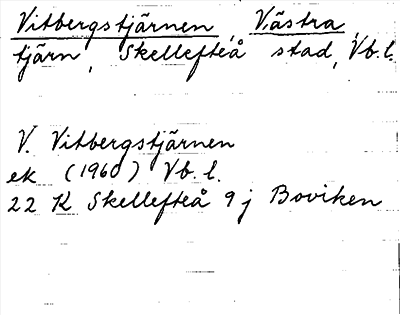 Vitbergstjärnen, Västra,
tjärn, Skellefteå stad, Vb.l.
V. Vitbergstjärnen
ek (1960) Vb.l.
22 K Skellefteå 9 j Boviken